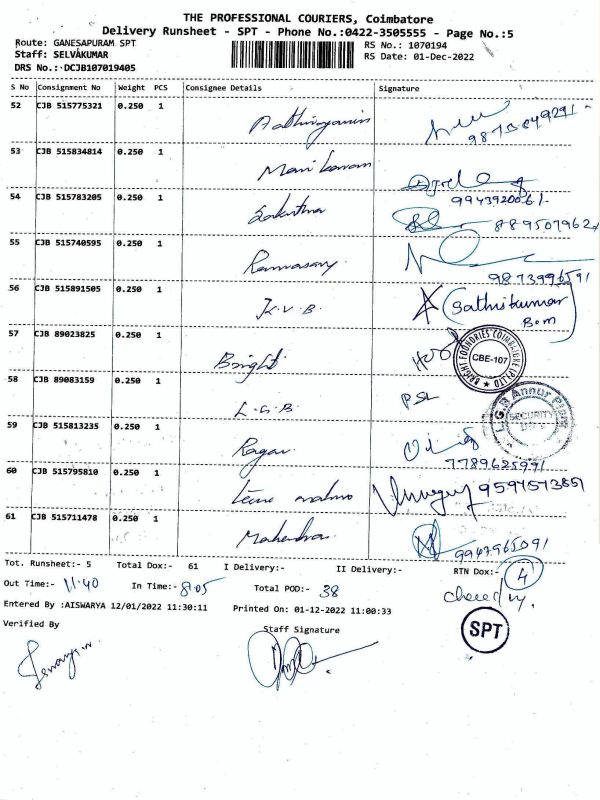 THE PROFESSIONAL COURIERS, Coimbatore
Delivery Runsheet - SPT - Phone No.:0422-3505555 - Page No.:5
Route: GANESAPURAM SPT
RS No.: 1070194
Staff: SELVAKUMAR
RS Date: 01-Dec-2022
DRS No.: DCJB107019405
S No Consignment No Weight PCS Consignee Details Signature
52 CJB 515775321 0.250 1
53 CJB 515834814 0.250 1
9943920061-
54 CJB 515783205 0.250 1
889507962
55 CJB 515740595 0.250 1 Ramasamy
9873996591
56 CJB 515891505 0.250 1 K.V.B. (Sathishkumar
Bom
57 CJB 89023825 0.250 1 Bright
BRIGHT FOUNDRIES COIMBATORE (P) LTD
CBE-107
58 CJB 89083159 0.250 1 L.G.B PSL
L.G.B Annur Plant
SECURITY
59 CJB 515813235 0.250 1 Ragav
7789625991
60 CJB 515795810 0.250 1 9597573851
61 CJB 515711478 0.250 1 Mahendra
9947965091
Tot. Runsheet:- 5 Total Dox:- 61 I Delivery:- II Delivery:- RTN Dox:- 4
Out Time:- 11.40 In Time:- 8.05 Total POD:- 38
Entered By :AISWARYA 12/01/2022 11:30:11 Printed On: 01-12-2022 11:00:33
Verified By Staff Signature
SPT